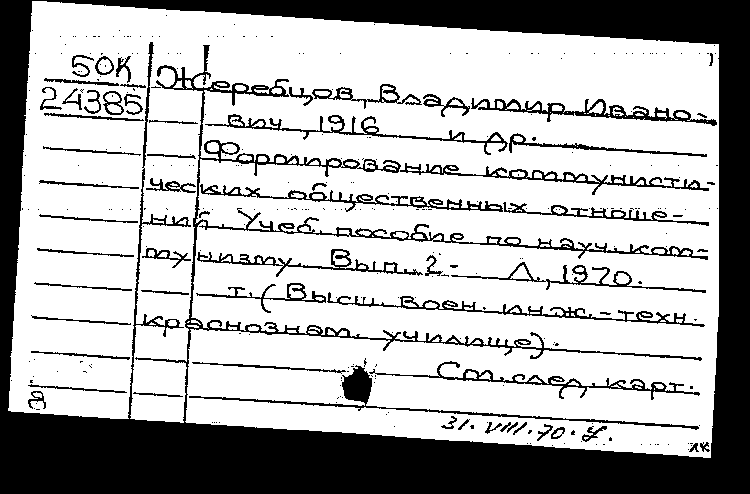 50К
24385
Жеребцов, Владимир Ивано-
вич, 1916 и др.
Формирование коммунисти-
ческих общественных отноше-
ний. Учеб. пособие по науч. ком-
мунизму. Вып. 2- Л., 1970.
т. (Высш. воен. инж.-техн.
краснознам. училище).
См. след. карт.
31.VIII.70.
лк